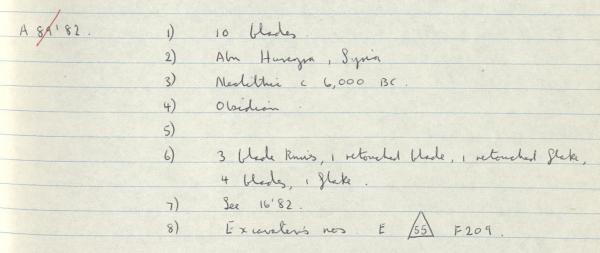 A 89'82. 1) 10 blades.
2) Abu Hureyra, Syria
3) Neolithic c 6,000 BC.
4) Obsidian.
5)
6) 3 blade knives, 1 retouched blade, 1 retouched flake,
4 blades, 1 flake.
7) See 16'82.
8) Excavator's nos E 55 F209.